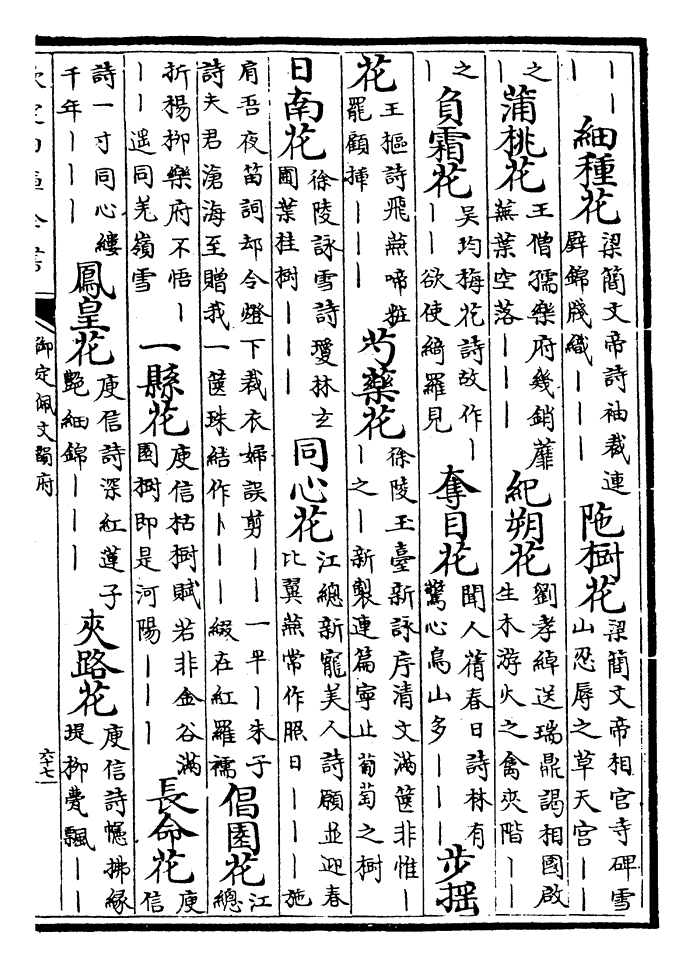 ｜｜細種花 梁簡文帝詩袖裁連璧錦牋織｜｜｜ 陁樹花 梁簡文帝相宫寺碑雪山忍辱之草天宫｜｜
之｜蒲桃花 王僧孺樂府幾銷蘼蕪葉空落｜｜｜ 紀朔花 劉孝綽送瑞鼎謁相國啟生木游火之禽夾階｜｜
之｜負霜花 吴均梅花詩故作｜｜｜欲使綺羅見 奪目花 聞人蒨春日詩林有驚心鳥山多｜｜｜ 步摇
花 王樞詩飛燕啼粧罷顧揷｜｜｜ 芍藥花 徐陵玉臺新詠序清文滿篋非惟｜｜之｜新製連篇寧止葡萄之樹
日南花 徐陵詠雪詩瓊林玄圃葉桂樹｜｜｜ 同心花 江總新寵美人詩願並迎春比翼燕常作照日｜｜｜施
肩吾夜笛詞却令燈下裁衣婦誤剪｜｜｜一半｜朱子詩夫君滄海至贈我一篋珠結作｜｜｜綴在紅羅襦 倡園花 江總
折楊柳樂府不悟｜｜｜遥同羌嶺雪 一縣花 庾信枯樹賦若非金谷滿園樹即是河陽｜｜｜ 長命花 庾信
詩一寸同心縷千年｜｜｜ 鳳皇花 庾信詩深紅蓮子艷細錦｜｜｜ 夾路花 庾信詩幰拂縁堤柳甍飄｜｜
欽定四庫全書 御定佩文韻府 六十七